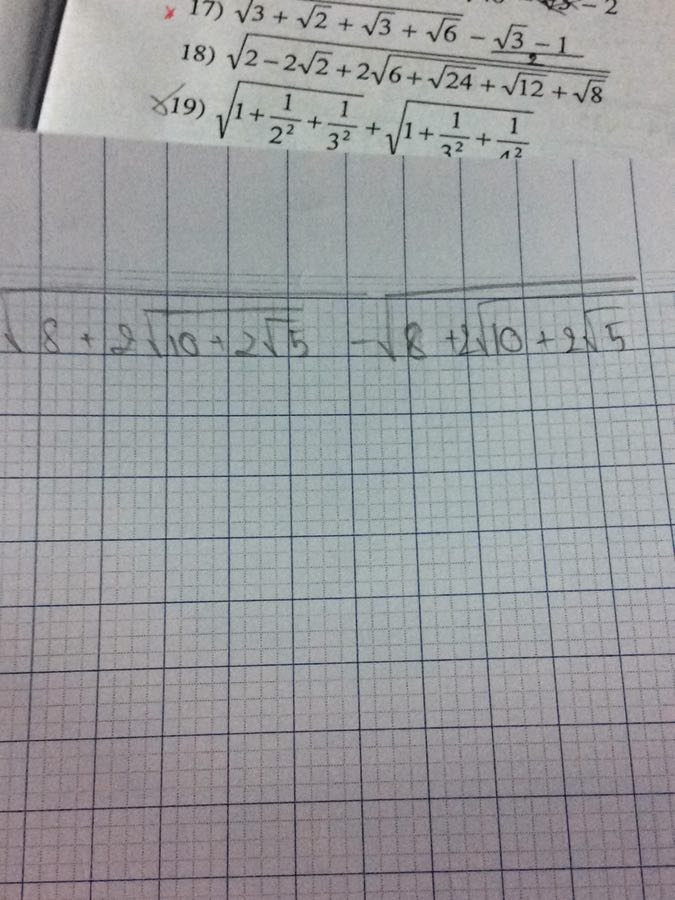 - 2
17) √(3 + √2 + √3 + √6) - (√3 - 1)/2
18) √(2 - 2√2 + 2√(6 + √24 + √12 + √8))
19) √(1 + 1/2² + 1/3²) + √(1 + 1/3² + 1/4²)
√(8 + 2√(10 + 2√5)) - √(8 + 2√(10 + 2√5))